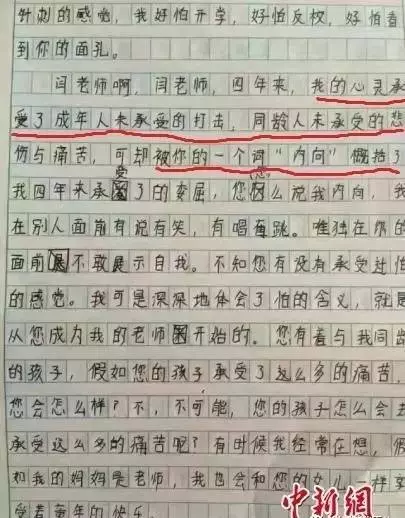 针刺的感觉，我好怕开学，好怕反校，好怕看
到你的面孔。
闫老师啊，闫老师，四年来，我的心灵承
受了成年人未承受的打击，同龄人未承受的悲
伤与痛苦，可却被你的一个词“内向”概括了
我四年来承受了的委屈，您怎么说我内向，我
在别人面前有说有笑，有唱有跳。唯独在你的
面前不敢展示自我。不知您有没有承受过怕
的感觉。我可是深深地体会了怕的含义，就是
从您成为我的老师开始的。您有着与我同龄
的孩子，假如您的孩子承受了这么多的痛苦，
您会怎么样？不，不可能，您的孩子怎么会去
承受这么多的痛苦呢？有时候我经常在想，假
如我的妈妈是老师，我也会和您的女儿一样享
受着童年的快乐。
中新網